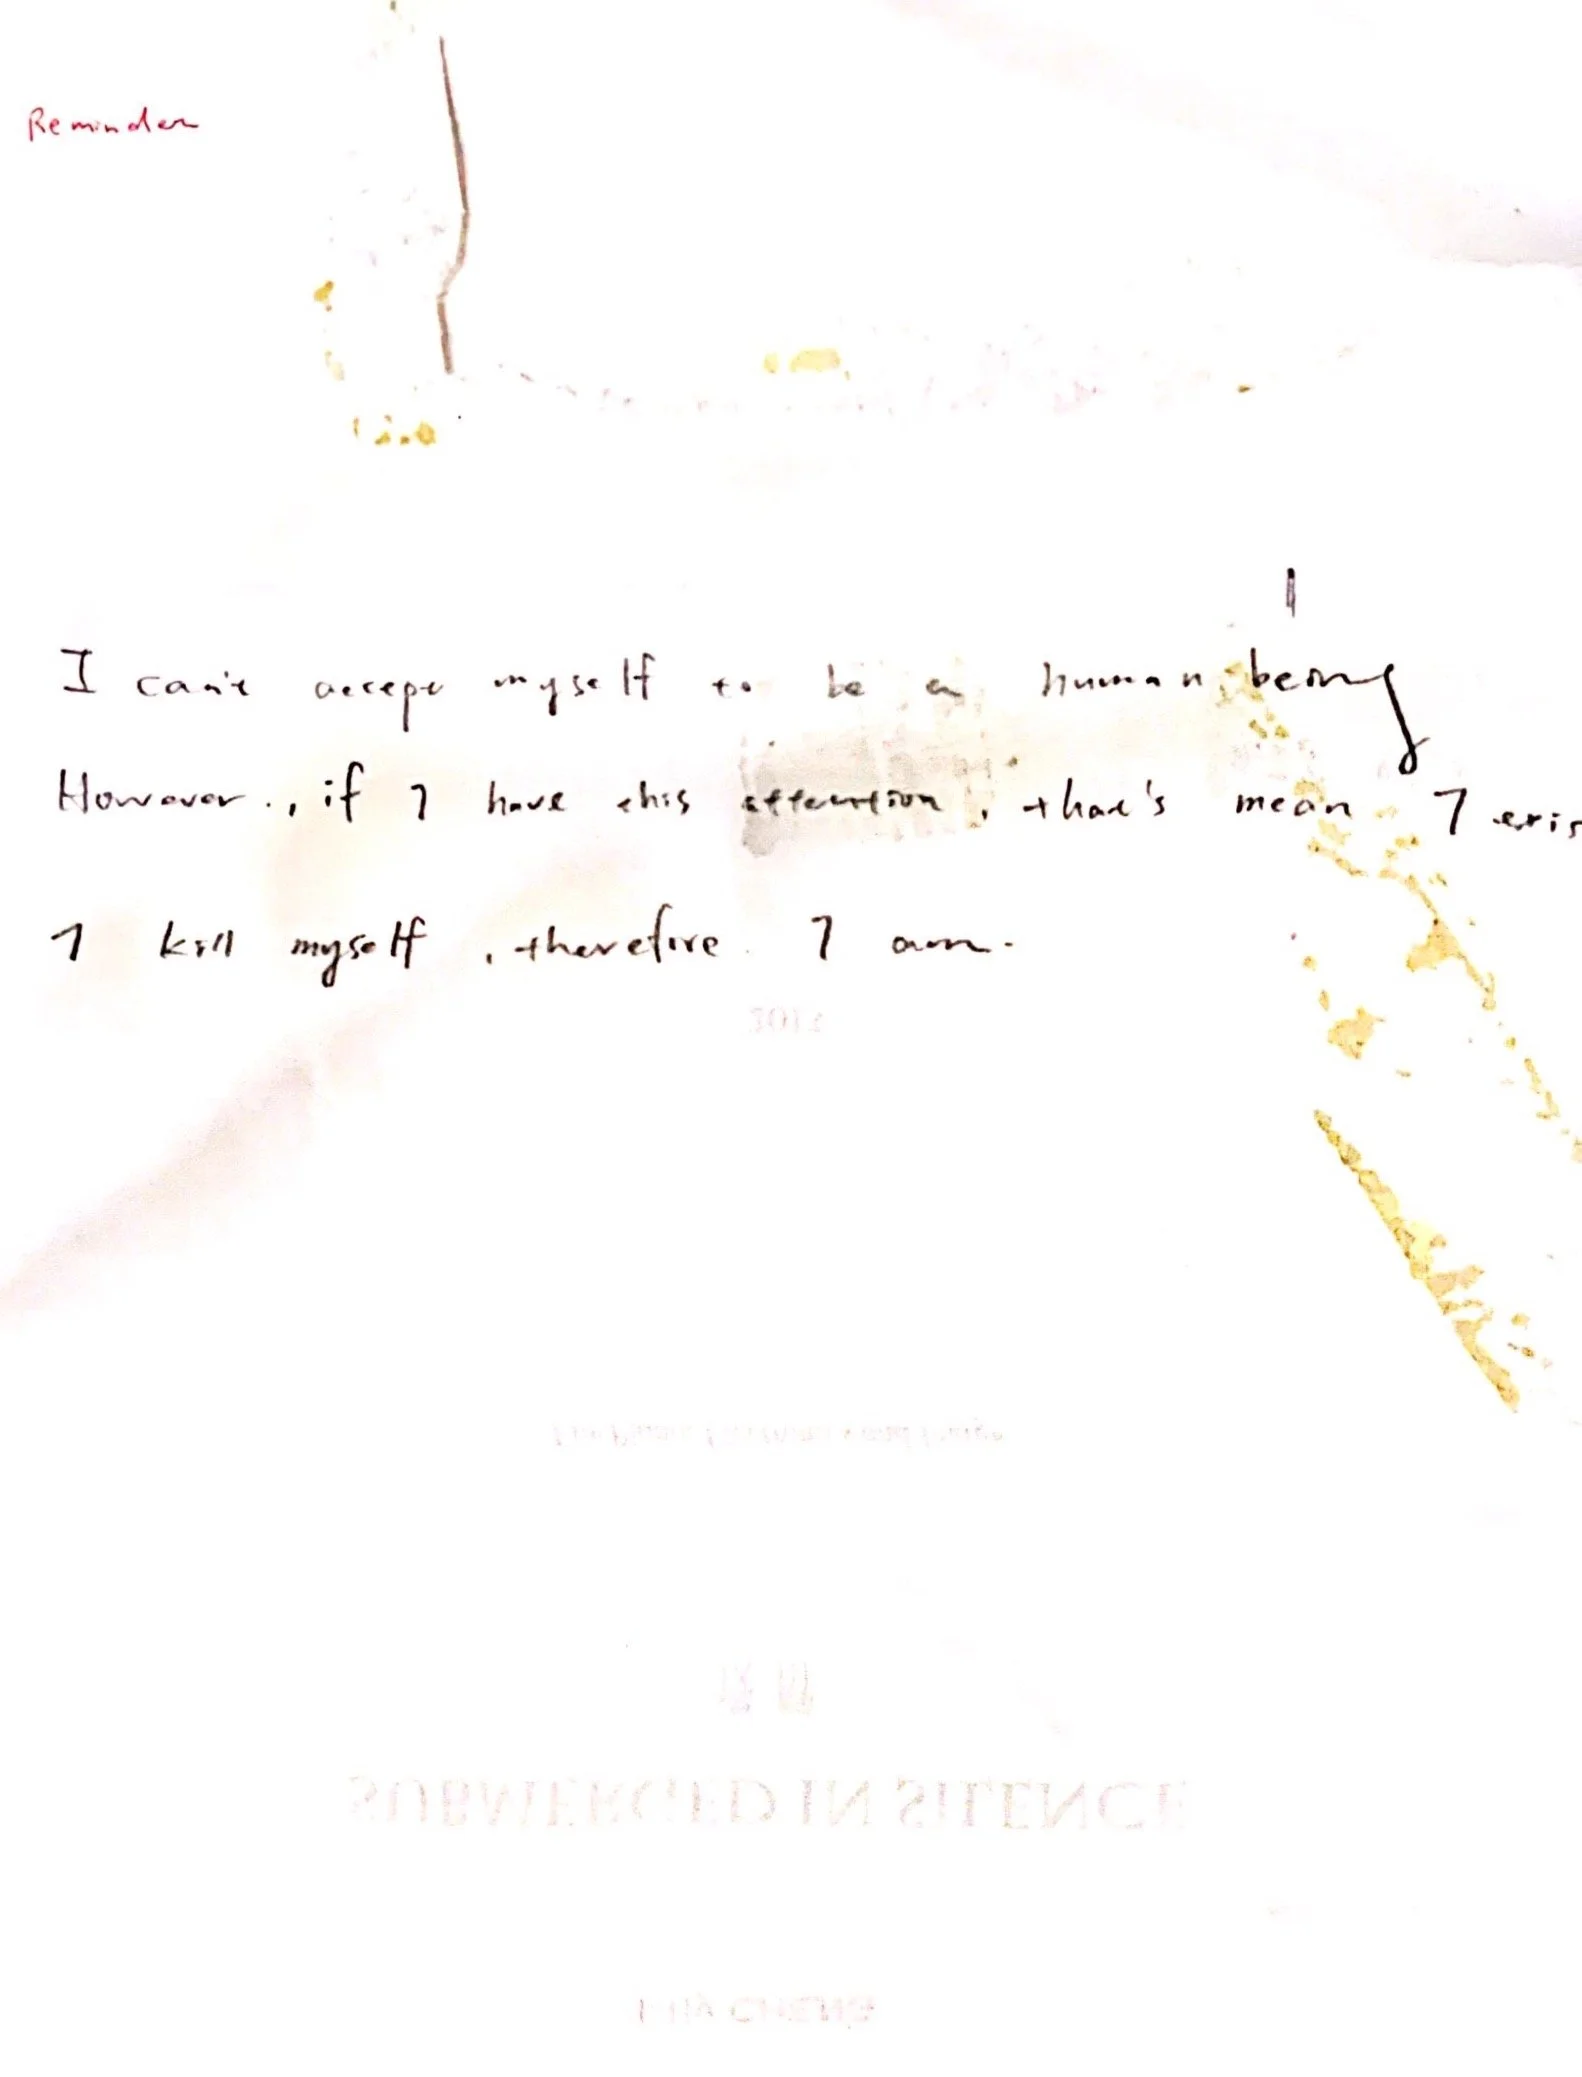 Reminder
I can't accept myself to be a human being
However., if I have this attention, that's mean I exis
I kill myself, therefore I am.
2013
SUBMERGED IN SILENCE
CHENG